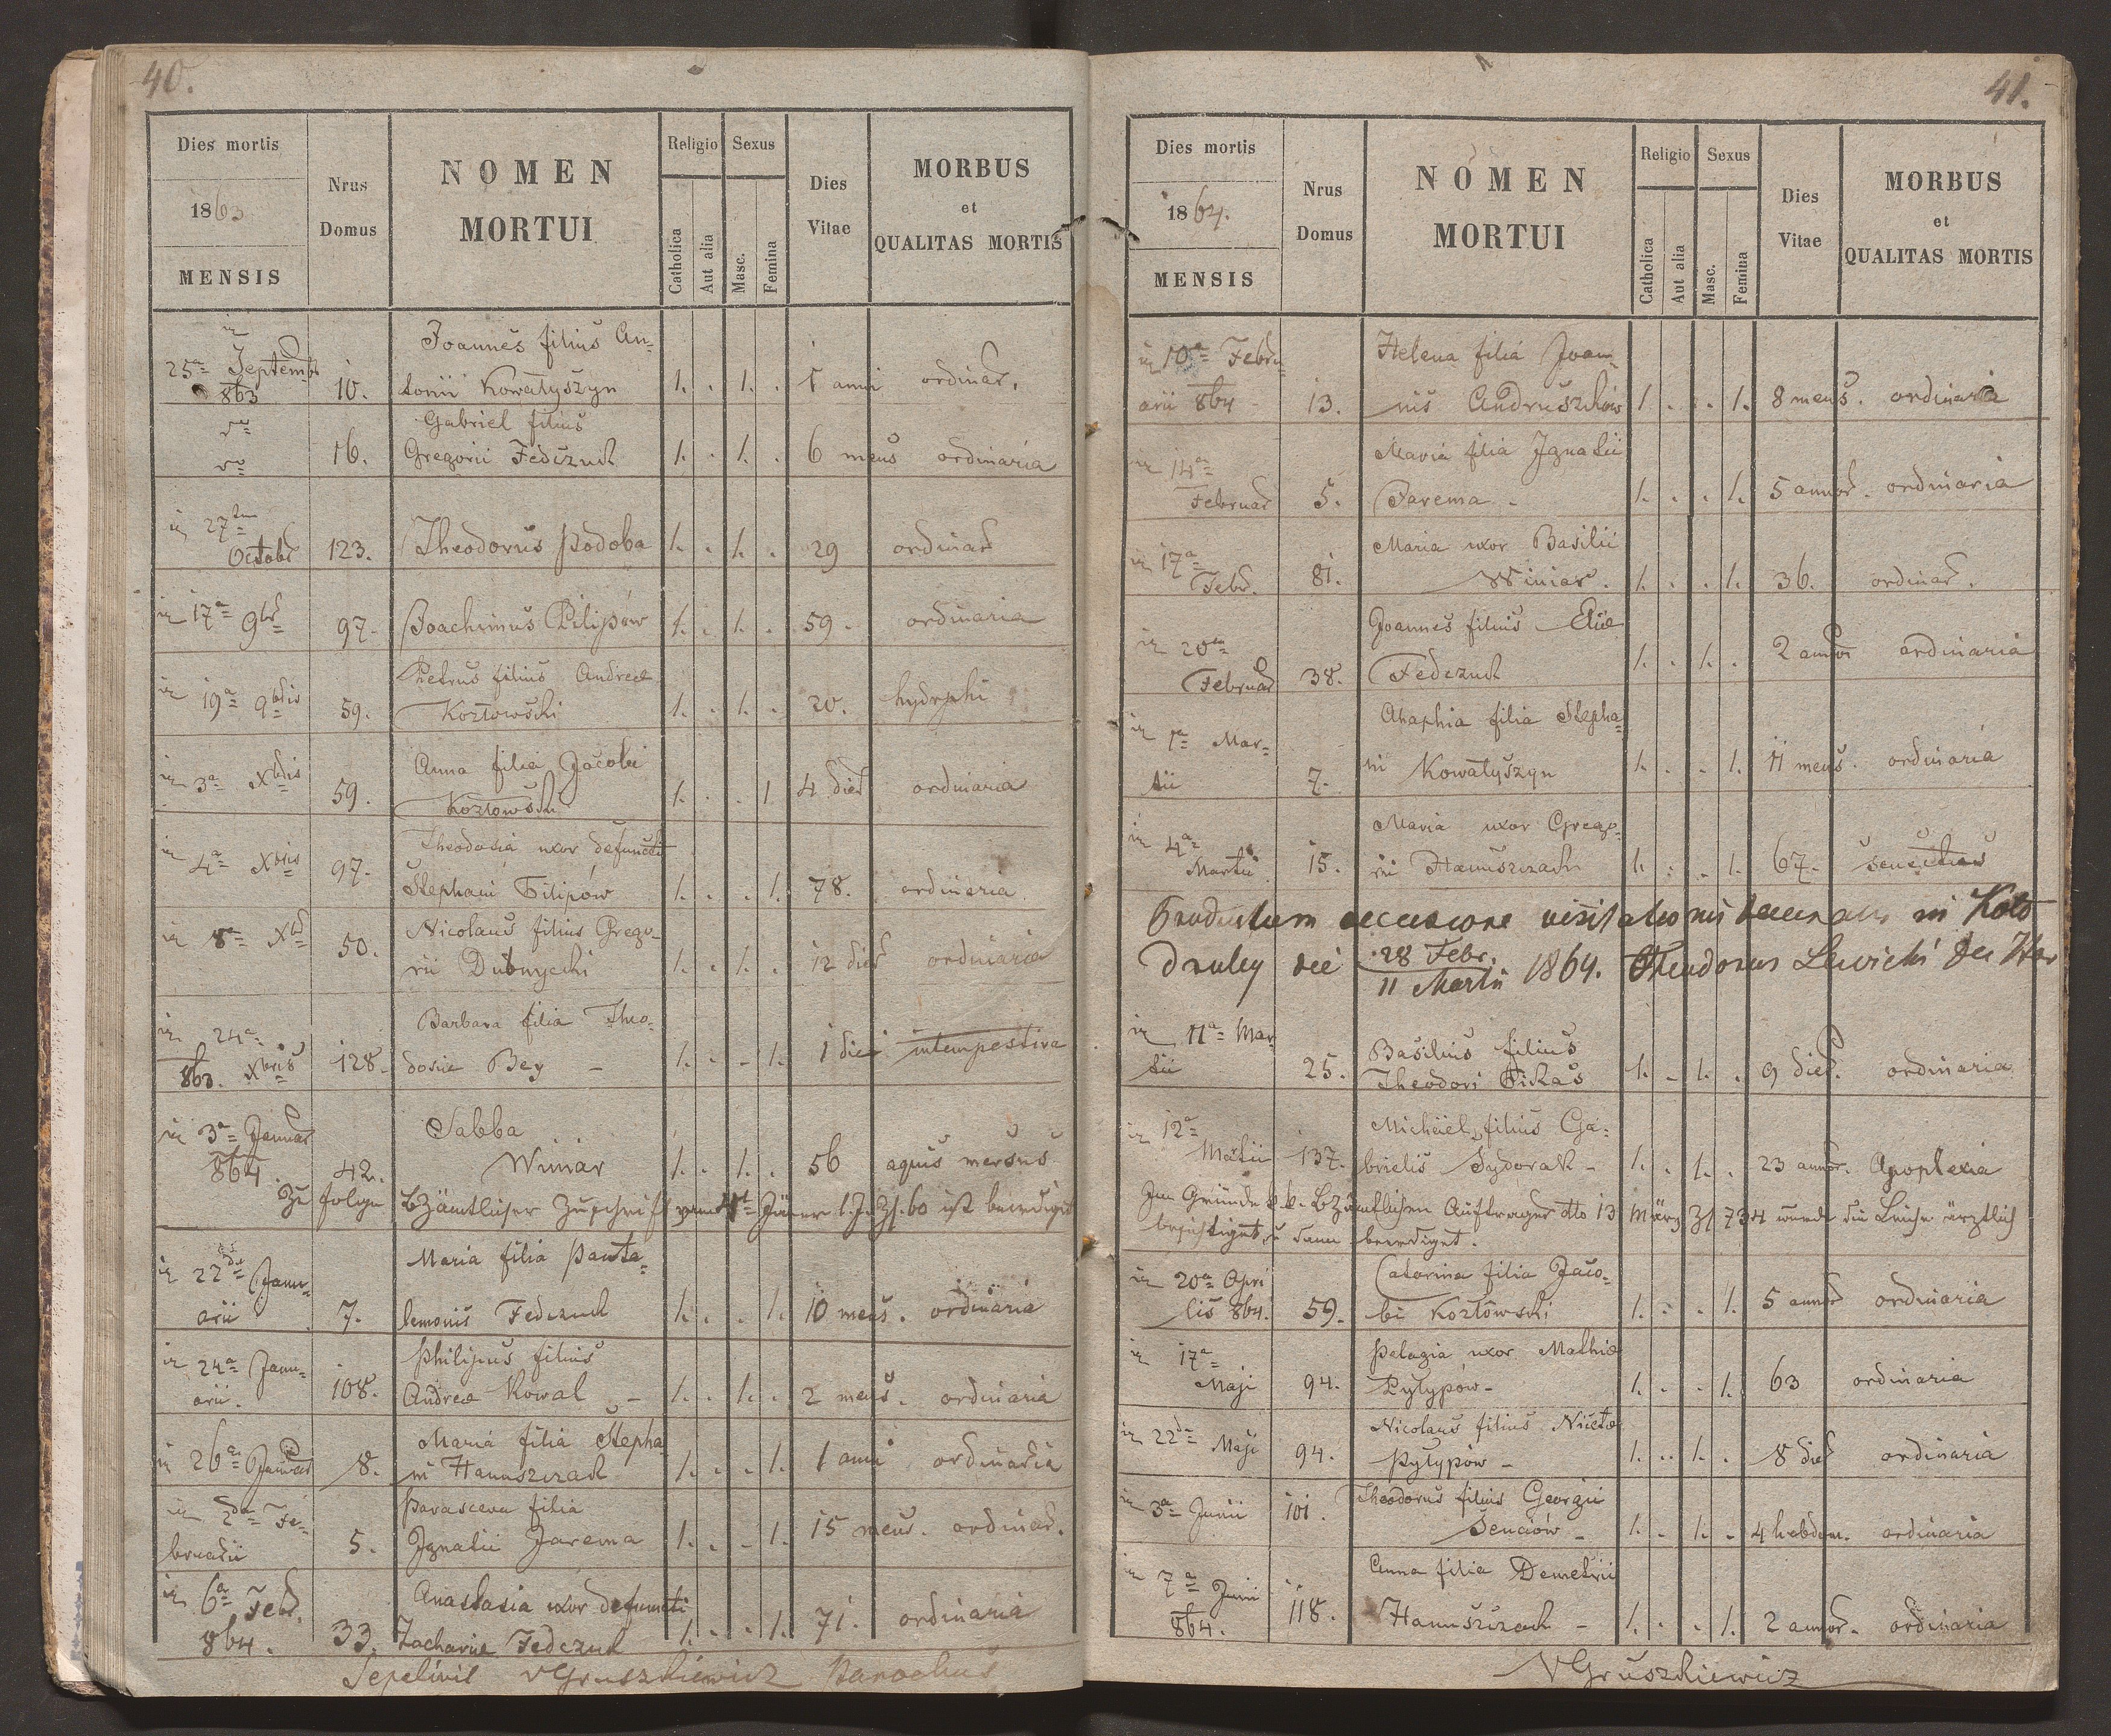 40.
Dies mortis
1863
MENSIS
Nrus Domus
NOMEN
MORTUI
Religio
Catholica
Aut alia
Sexus
Masc.
Femina
Dies Vitae
MORBUS
et
QUALITAS MORTIS
25a Septembr 863 10. Joannes filius An=
tonii Kowałyszyn 1. . 1. . 1 anni ordinar.
16. Gabriel filius
Gregorii Fedczuch 1. . 1. . 6 mens ordinaria
27 Octobr 123. Theodorus Podoba 1. . 1. . 29 ordinar
17a 9br 97. Joachimus Pilipów 1. . 1. . 59. ordinaria
19a 9bris 59. Petrus filius Andreae
Kozłowski 1. . 1. . 20.
3a Xbris 59. Anna filia Jacobi
Kozłowski 1. . . 1 4 dier ordinaria
4a Xbris 97. Theodosia uxor defuncti
Stephani Pilipów 1. . . 1. 78. ordinaria
8a Xbr 50. Nicolaus filius Grego-
rii Dubnycki 1. . 1. . 12 dier ordinaria
24a 863. Xbris 128. Barbara filia Theo-
dosiae Bey - 1. . - 1. 1 diei intempestiva
3a Januar 864. 42. Sabba
Winiar 1. . 1. . 56 aquis mersus
Zu folge Bzämtlicher Zuschrift vom 4t Jäner l. J. Zl. 60 ist beerdigt
22da Janu=
arii 7. Maria filia Panta=
lemonis Fedczuch 1. . . 1. 10 mens. ordinaria
24a Janu=
arii. 108. Philipus filius
Andreae Kowal - 1. . 1. . 2 mens. ordinaria
26a Januar 8. Maria filia Stepha
ni Hanuszczach 1. . . 1. 1 anni ordinaria
2da Fe=
bruarii 5. Parasceva filia
Ignatii Jarema 1. . - 1. 15 mens. ordinar.
6a Febr. 864. 33. Anastasia uxor defuncti
Zachariae Fedczuch 1. . . 1. 71. ordinaria
Sepelivit VGruszkiewicz Parochus
41.
Dies mortis
1864.
MENSIS
Nrus Domus
NOMEN
MORTUI
Religio
Catholica
Aut alia
Sexus
Masc.
Femina
Dies Vitae
MORBUS
et
QUALITAS MORTIS
10a Febru
arii 864 13. Helena filia Joan
nis Andruszków 1. . . 1. 8 mens. ordinaria
14a Februar 5. Maria filia Ignatii
Jarema - 1. . . 1. 5 annor. ordinaria
17a Febr. 81. Maria uxor Basilii
Winiar. 1. . . 1. 36. ordinar.
20a Februar 38. Joannes filius Eliae
Fedczuch 1. . 1. . 2 annor ordinaria
1a Mar=
tii 7. Ahaphia filia Stepha=
ni Kowałyszyn 1. . . 1. 11 mens. ordinaria
4a Martii 15. Maria uxor Grego-
rii Hanuszczach 1. . . 1. 67. senectus
Productum occasione visitationis decanalis in Koło
druby die 28 Febr. / 11 Martii 1864. Theodorus Lewicki
11a Mar
tii 25. Basilius filius
Theodori 1. - 1. . 9 dier. ordinaria
12a Martii 137. Michael filius Ga=
brielis Sydorak - 1. . 1. . 23 annor. Apoplexia
Im Grunde k. k. Bzämtlichen Auftrages dto 13 März Zl 734 wurde die Leiche ärztlich
besichtigt, u dann beerdiget.
20a Apri
lis 864. 59. Catarina filia Jaco-
bi Kozłowski 1. . . 1. 5 annor ordinaria
17a Maji 94. Pelagia uxor Mathiae
Pylypów - 1. . . 1. 63 ordinaria
22da Maji 94. Nicolaus filius Nicetae
Pylypów - 1. . 1. . 8 dier ordinaria
3a Junii 101. Theodorus filius Georgii
Senciów - 1. . 1. - 4 hebdom. ordinaria
7a Juni 864. 118. Anna filia Demetrii
Hanuszczach - 1. . . 1. 2 annor. ordinaria
VGruszkiewicz